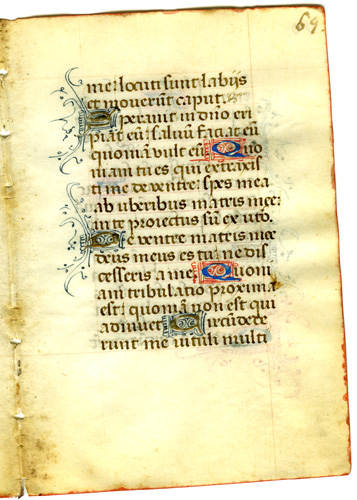 69.
me: locuti sunt labijs
et moverũt caput.
Speravit in dño eri
piat eũ: salvũ faciat eũ
quoniã vult eũ. Quo
niam tu es qui extraxis
ti me de ventre: spes mea
ab uberibus matris mee:
in te proiectus sũ ex vtõ.
De ventre matris mee
deus meus es tu: ne dis
cesseris a me. Quoni
am tribulatio proxima
est: quoniã non est qui
adiuvet. Circũdede
runt me vituli multi